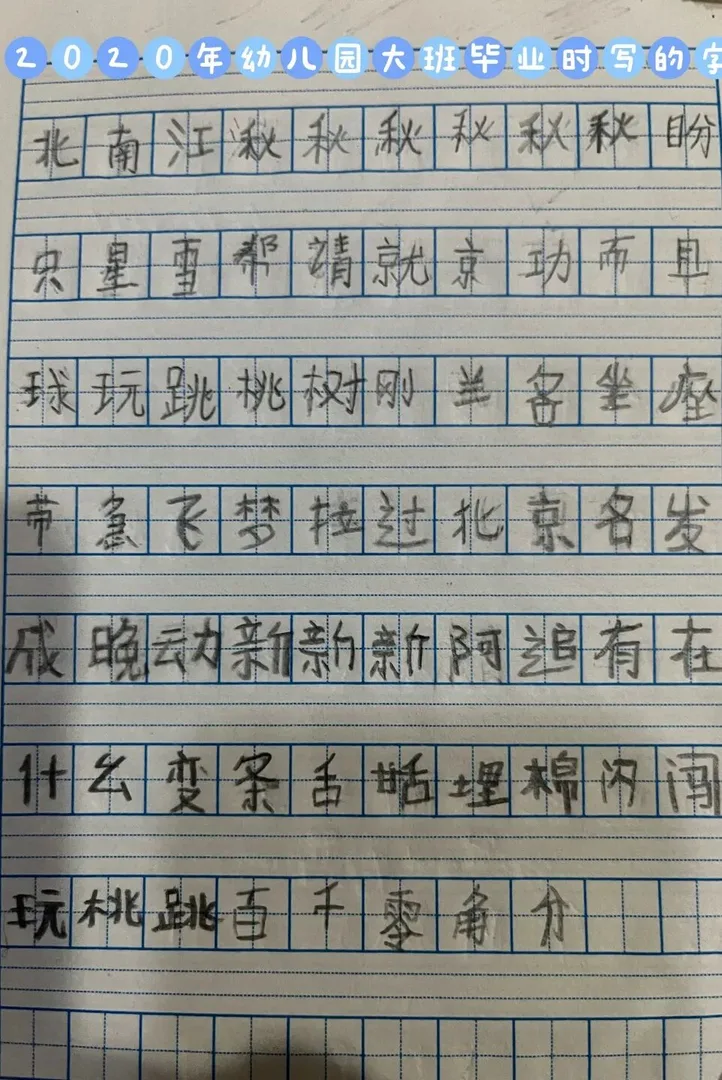 2020年幼儿园大班毕业时写的字
北南江秋秋秋秋秋秋盼
只星雪帮靖就京功而且
球玩跳桃树刚兰客坐座
带急飞梦拉过北京名发
成晚动新新新阿追有在
什么变条舌甜埋棉闪闯
玩桃跳百千零角分